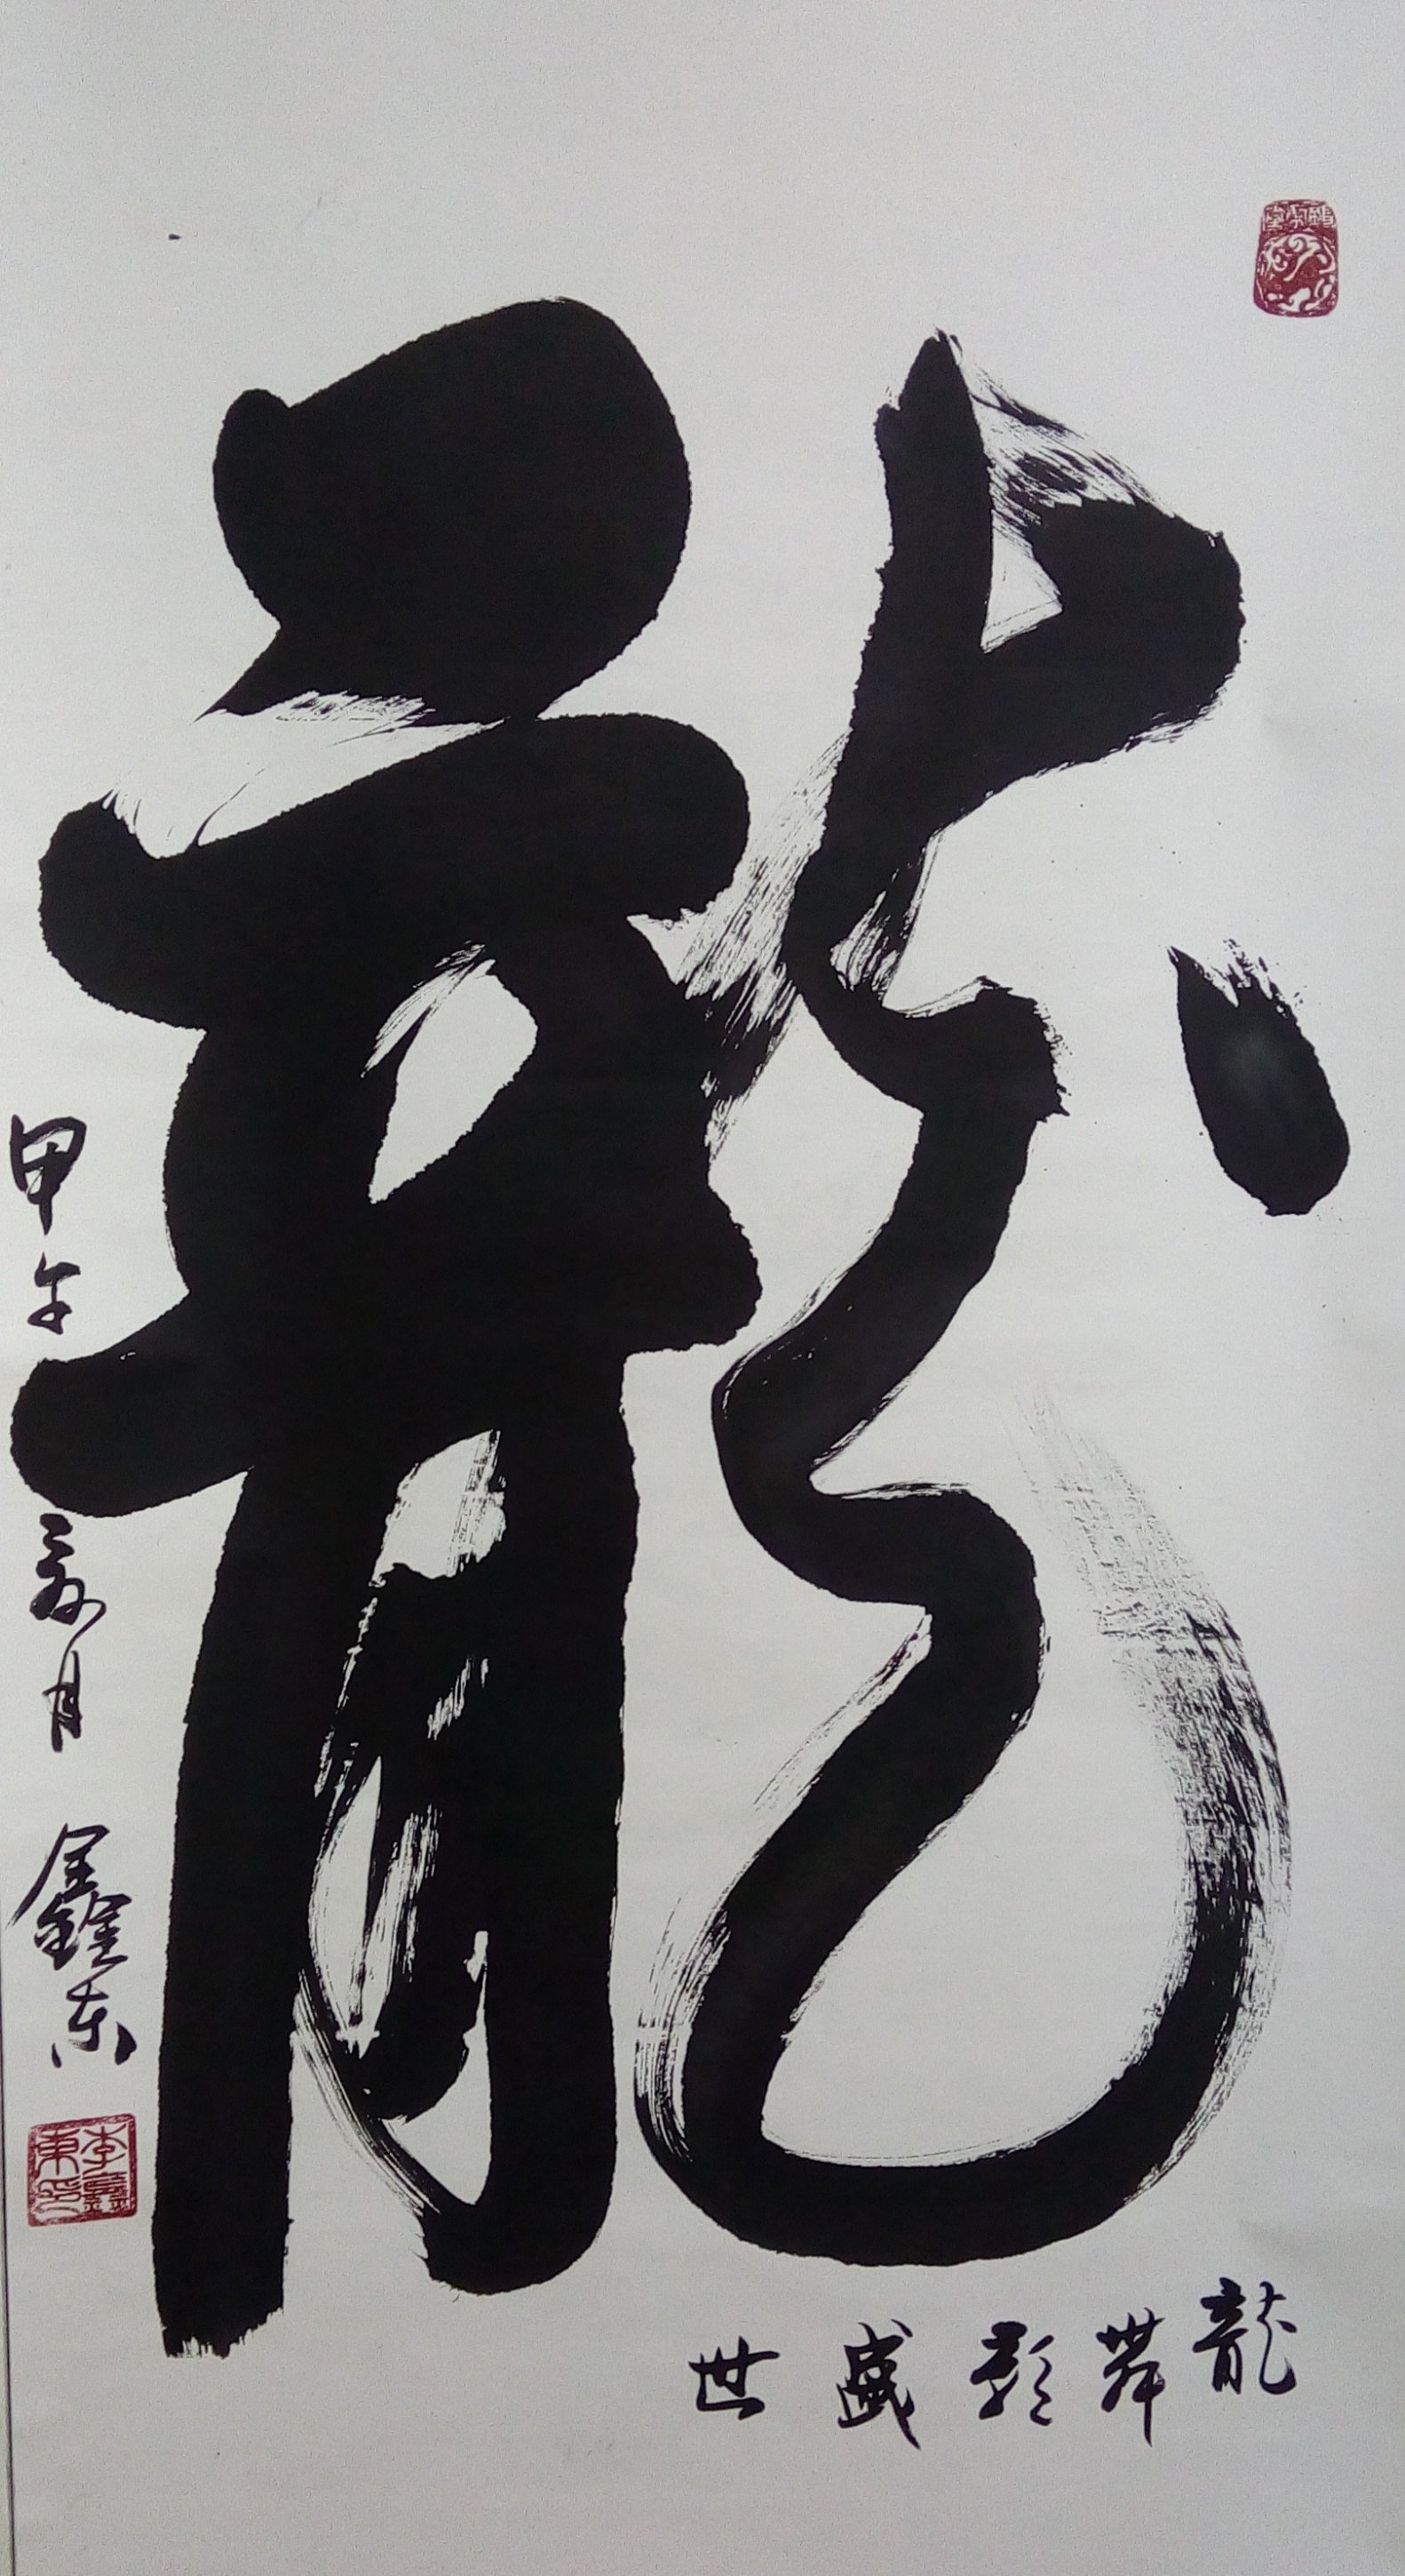 龍
龍舞盛世
甲午月鑫东
李鑫東印